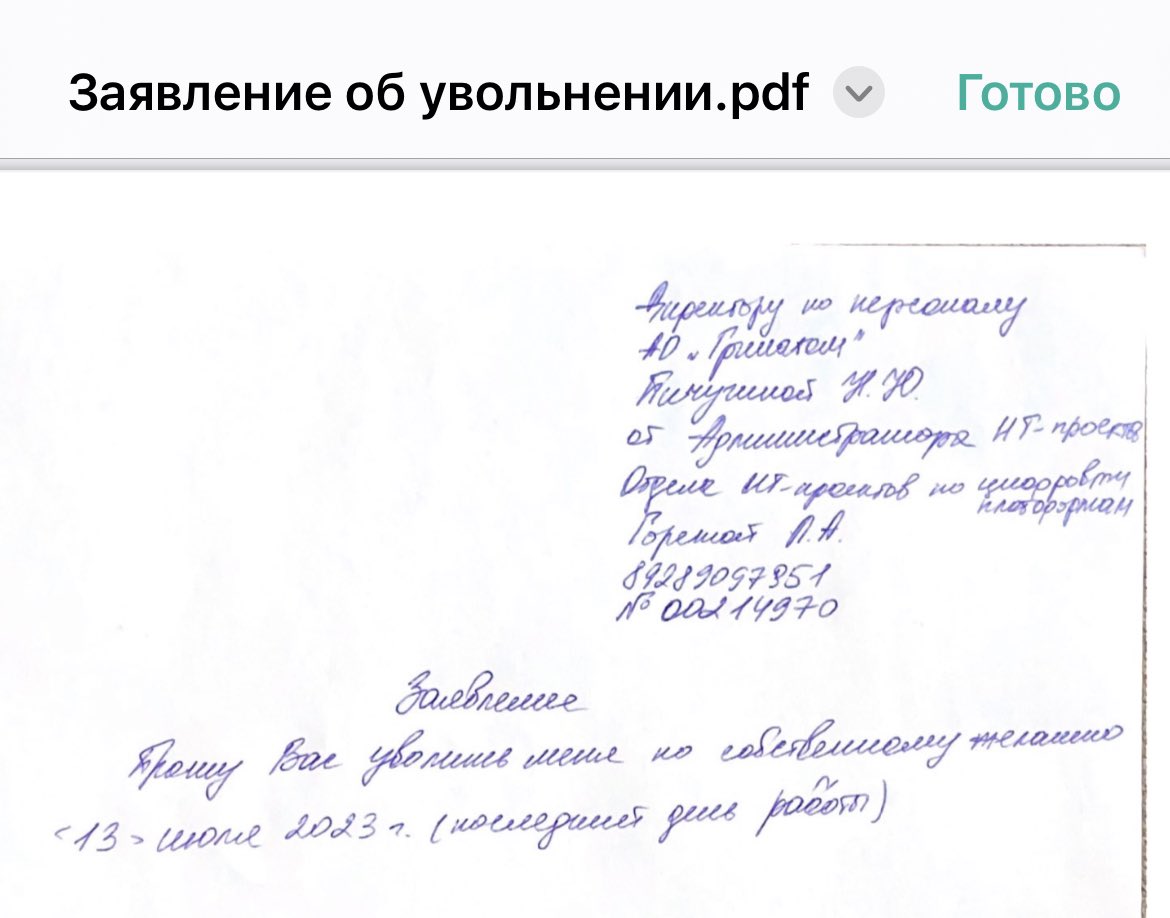 Заявление об увольнении.pdf
Готово
Директору по персоналу
АО „Гринатом”
Пичугиной Н.Ю.
от Администратора ИТ-проектов
Отдела ИТ-проектов по цифровым
платформам
Горской Л.А.
№ 00214970
Заявление
Прошу Вас уволить меня по собственному желанию
<13> июля 2023 г. (последний день работы)